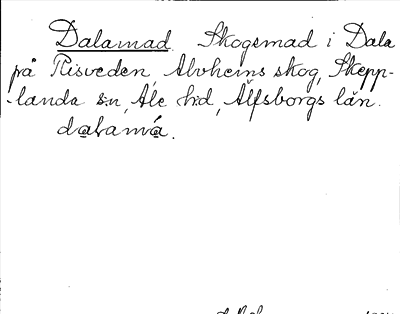 Dalamad. Skogsmad i Dala
på Risveden, Alvhems skog, Skepp-
-landa s:n, Ale h:d, Älfsborgs län.
dalamá.